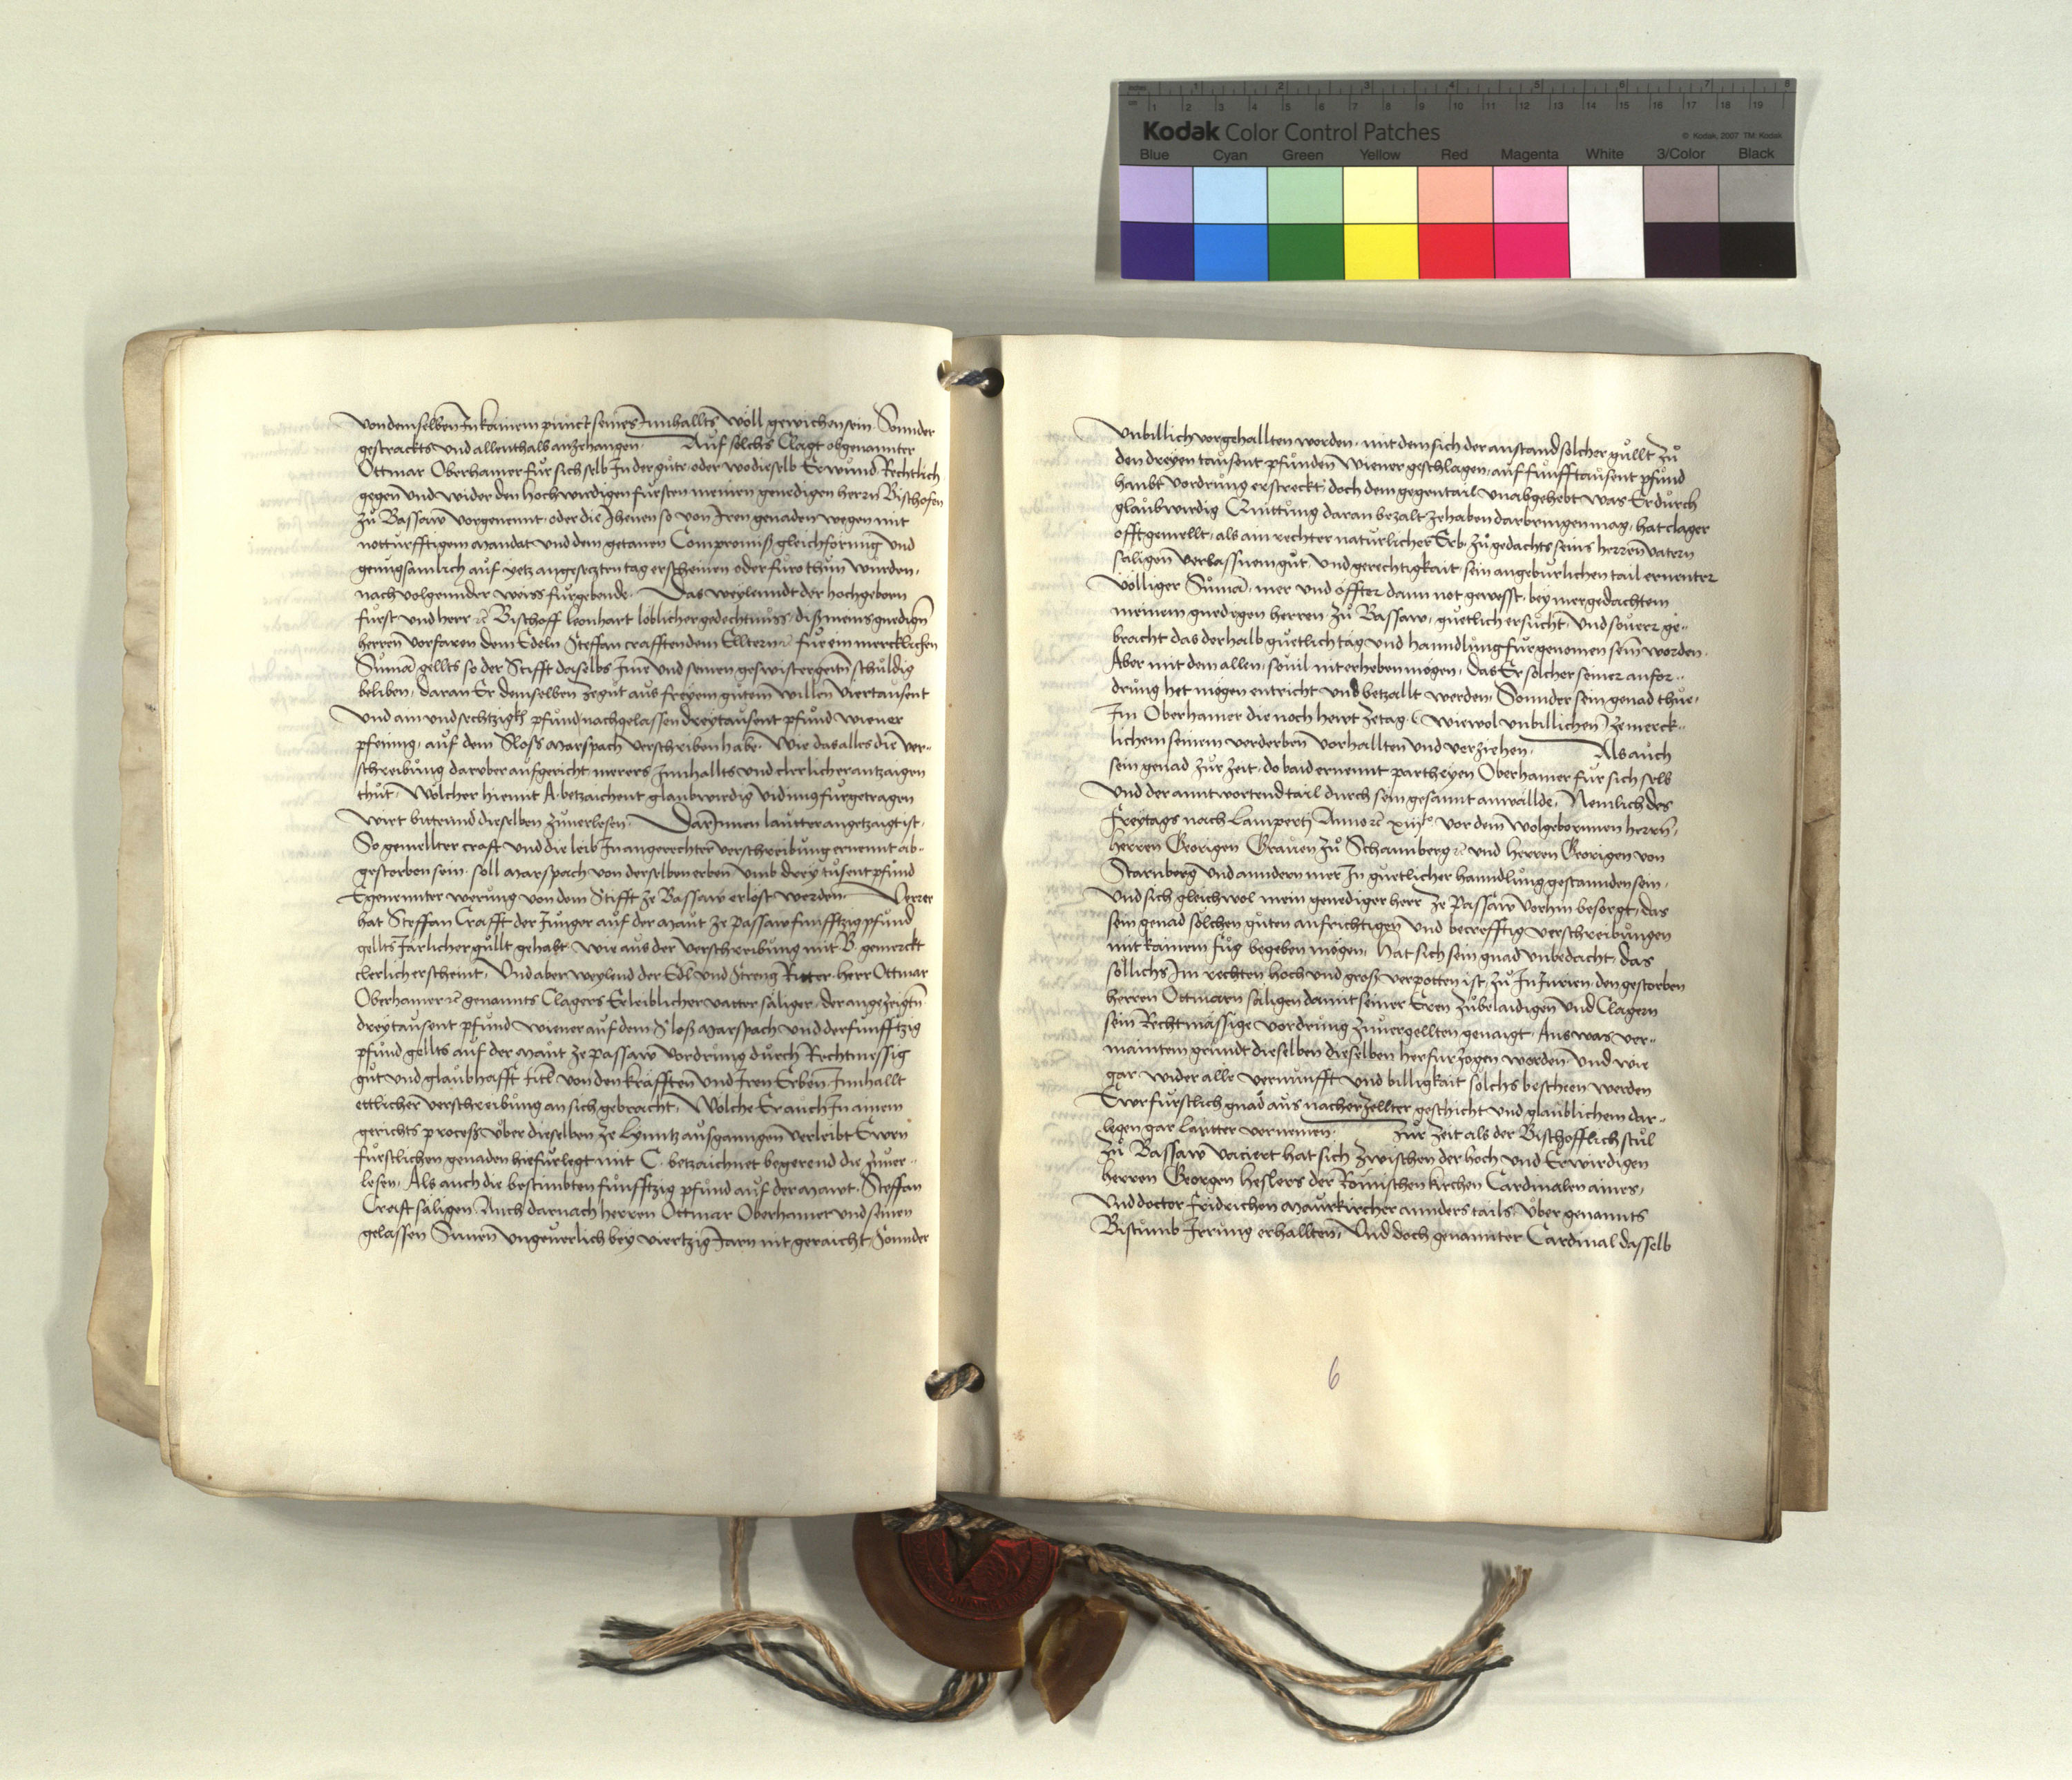 inches 1 2 3 4 5 6 7 8
cm 1 2 3 4 5 6 7 8 9 10 11 12 13 14 15 16 17 18 19
Kodak Color Control Patches
© Kodak, 2007 TM: Kodak
Blue Cyan Green Yellow Red Magenta White 3/Color Black
von demselben In kainem punct seines Innhallts wöll gewichen sein Sonnder
gestrackts und allenthalb anzehangen Auf solchs Clagt obgenannter
Ottmar Oberhamer für sich selb In der güte oder wo dieselb Erwund Rechtlich
gegen und wider den hochwirdigen fürsten meinen genedigen herrn Bischofen
zů Bassaw vorgenennt oder die Jhenen so von Iren genaden wegen mit
notturfftigem mandat und dem getanen Compromiß gleichförmig und
genugsamlich auf yetz angesetzten tag erscheinen oder füro thůn wurden
nachvolgennder weiss fürgebende Das weylenndt der hochgeborn
fürst und herr ꝛc Bischoff leonhart loblicher gedechtnüss diß meins gnedign
herren vorfaren dem Edeln Steffan crafften dem Elltern ꝛc für ein mercklichen
Sůma gellts so der Stifft daselbs Ime und seinen geswistergetn schuldig
beliben daran Er demselben zegůt aus freyem gůtem willen viertausent
Und ain und sechtzigk pfund nachgelassen dreytausent pfund wiener
pfening auf dem Sloss Marspach verschriben habe Wie das alles die ver¨
schreibung darüber aufgericht merers Innhallts und clerlicher antzaigen
thůt Wölcher hiemit A betzaichent glaubwirdig vidimus fürgetragen
wirt bittund dieselben zuuerlesen Darinnen lautter angetzaigt ist
So gemellter craft und die leib In angerechter verschreibung ernennt ab¨
gestorben sein soll Marspach von derselben erben umb drey tausent pfund
Egenennter werung von dem Stifft ze Bassaw erlöst werden Verrer
hat Steffan Crafft der Junger auf der Maut ze passaw funfftzig pfund
gellts Järlicher güllt gehabt wie aus der verschreibung mit B gemerckt
clerlich erscheint Und aber weylend der Edl und Streng Ritter herr Ottmar
Oberhamer ꝛc genannts Clagers Eeleiblicher vatter säliger der angezeigtn
dreytausent pfund wiener auf dem Sloß Marspach und der funfftzig
pfund gellts auf der Maut ze passaw vordrung durch Rechtmessig
gut und glaubhafft titl von den kräfften und Iren Erben Innhallt
ettlicher verschreibung an sich gebracht Wölche Er auch In ainem
gerichts proceß über dieselben ze Lynntz ausgangen verleibt Ewrn
fürstlichen genaden hiefür legt mit C betzaichnet begerend die zuuer¨
lesen Als auch die bestimbten funfftzig pfund auf der Mawt Steffan
Craft säligen Auch darnach herren Ottmar Oberhamer und seinen
gelassen Sunen ungeuerlich bey viertzig Jarn nit geraicht Sonnder
Unbillich vorgehallten worden mit dem sich der anstand solcher gullt zů
den dreyen tausent pfunden wiener geschlagen auf funfftausent pfund
haubt vordrung erstreckt doch dem gegentail unabgehebt was Er durch
glaubwirdig Quittung daran bezalt zehaben darbringen mag hat clager
offtgemellt als ain rechter natürlicher Erb zů gedachts seins herren vatern
säligen verlassnem gůt und gerechtigkait sein angebürlichen tail ernenter
völliger Sůma mer und öffter dann not gewesst bey mergedachtem
meinem gnedigen herren zů Bassaw güetlich ersucht Und souerr ge¨
bracht das derhalb güetlich tag und hanndlung fürgenomen sein worden
Aber mit dem allen souil nit erheben mögen Das Er solcher seiner anfor¨
drung het mögen entricht und betzallt werden Sonnder sein genad thue
Im Oberhamer die noch hewt zetag (wiewol unbillichen) zemerck¨
lichem seinem verderben vorhallten und verziehen Als auch
sein genad zur zeit do baid ernennt partheyen Oberhamer für sich selb
Und der anntwortend tail durch sein gesannt anwällde Nemlich des
Freytags nach Lamperti Anno ꝛc xiiijo vor dem wolgebornnen herren
herren Georigen Grauen zů Schaunberg ꝛc und herren Georigen von
Starnberg und anndern mer In güetlicher hanndlung gestannden sein
Und sich gleichwol mein genediger herr ze Passaw vorhin besorgt das
sein genad solchen guten aufrichtigen und becrefftig verschreibungen
mit kainem füg begeben mögen Hat sich sein gnad unbedacht das
söllichs Im rechten hoch und groß verpotten ist zu InJurien den gestorben
herren Ottmarn säligen damit seiner Eren zubelaidigen und Clagern
sein Rechtmässige vordrung zuuergellten genaigt Aus was ver¨
maintem grundt dieselben dieselben herfür zogen worden und wie
gar wider alle vernunfft und billigkait solchs beschen werden
Ewr fürstlich gnad aus nacherzellter geschicht und glaublichem dar¨
legen gar lautter vernemen Zůr Zeit als der Bischofflich stul
zů Bassaw vaciert hat sich zwischen der hoch und Erwirdigen
herren Georgen Heslers der Römischen kirchen Cardinalen aines
Und doctor fridrichen Maurkircher annders tails über genannts
Bistumb Irrung erhallten Und doch genannter Cardinal dasselb
6